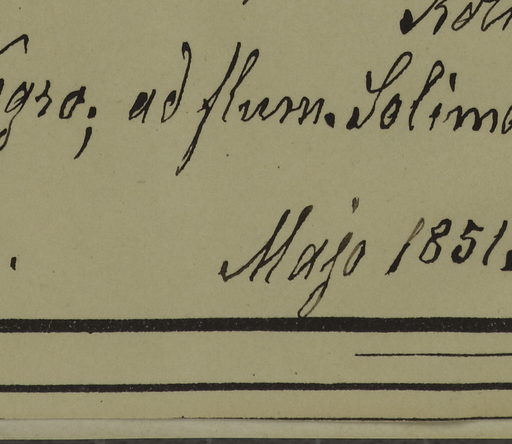 gro; ad flum. Solimo
Majo 1851.